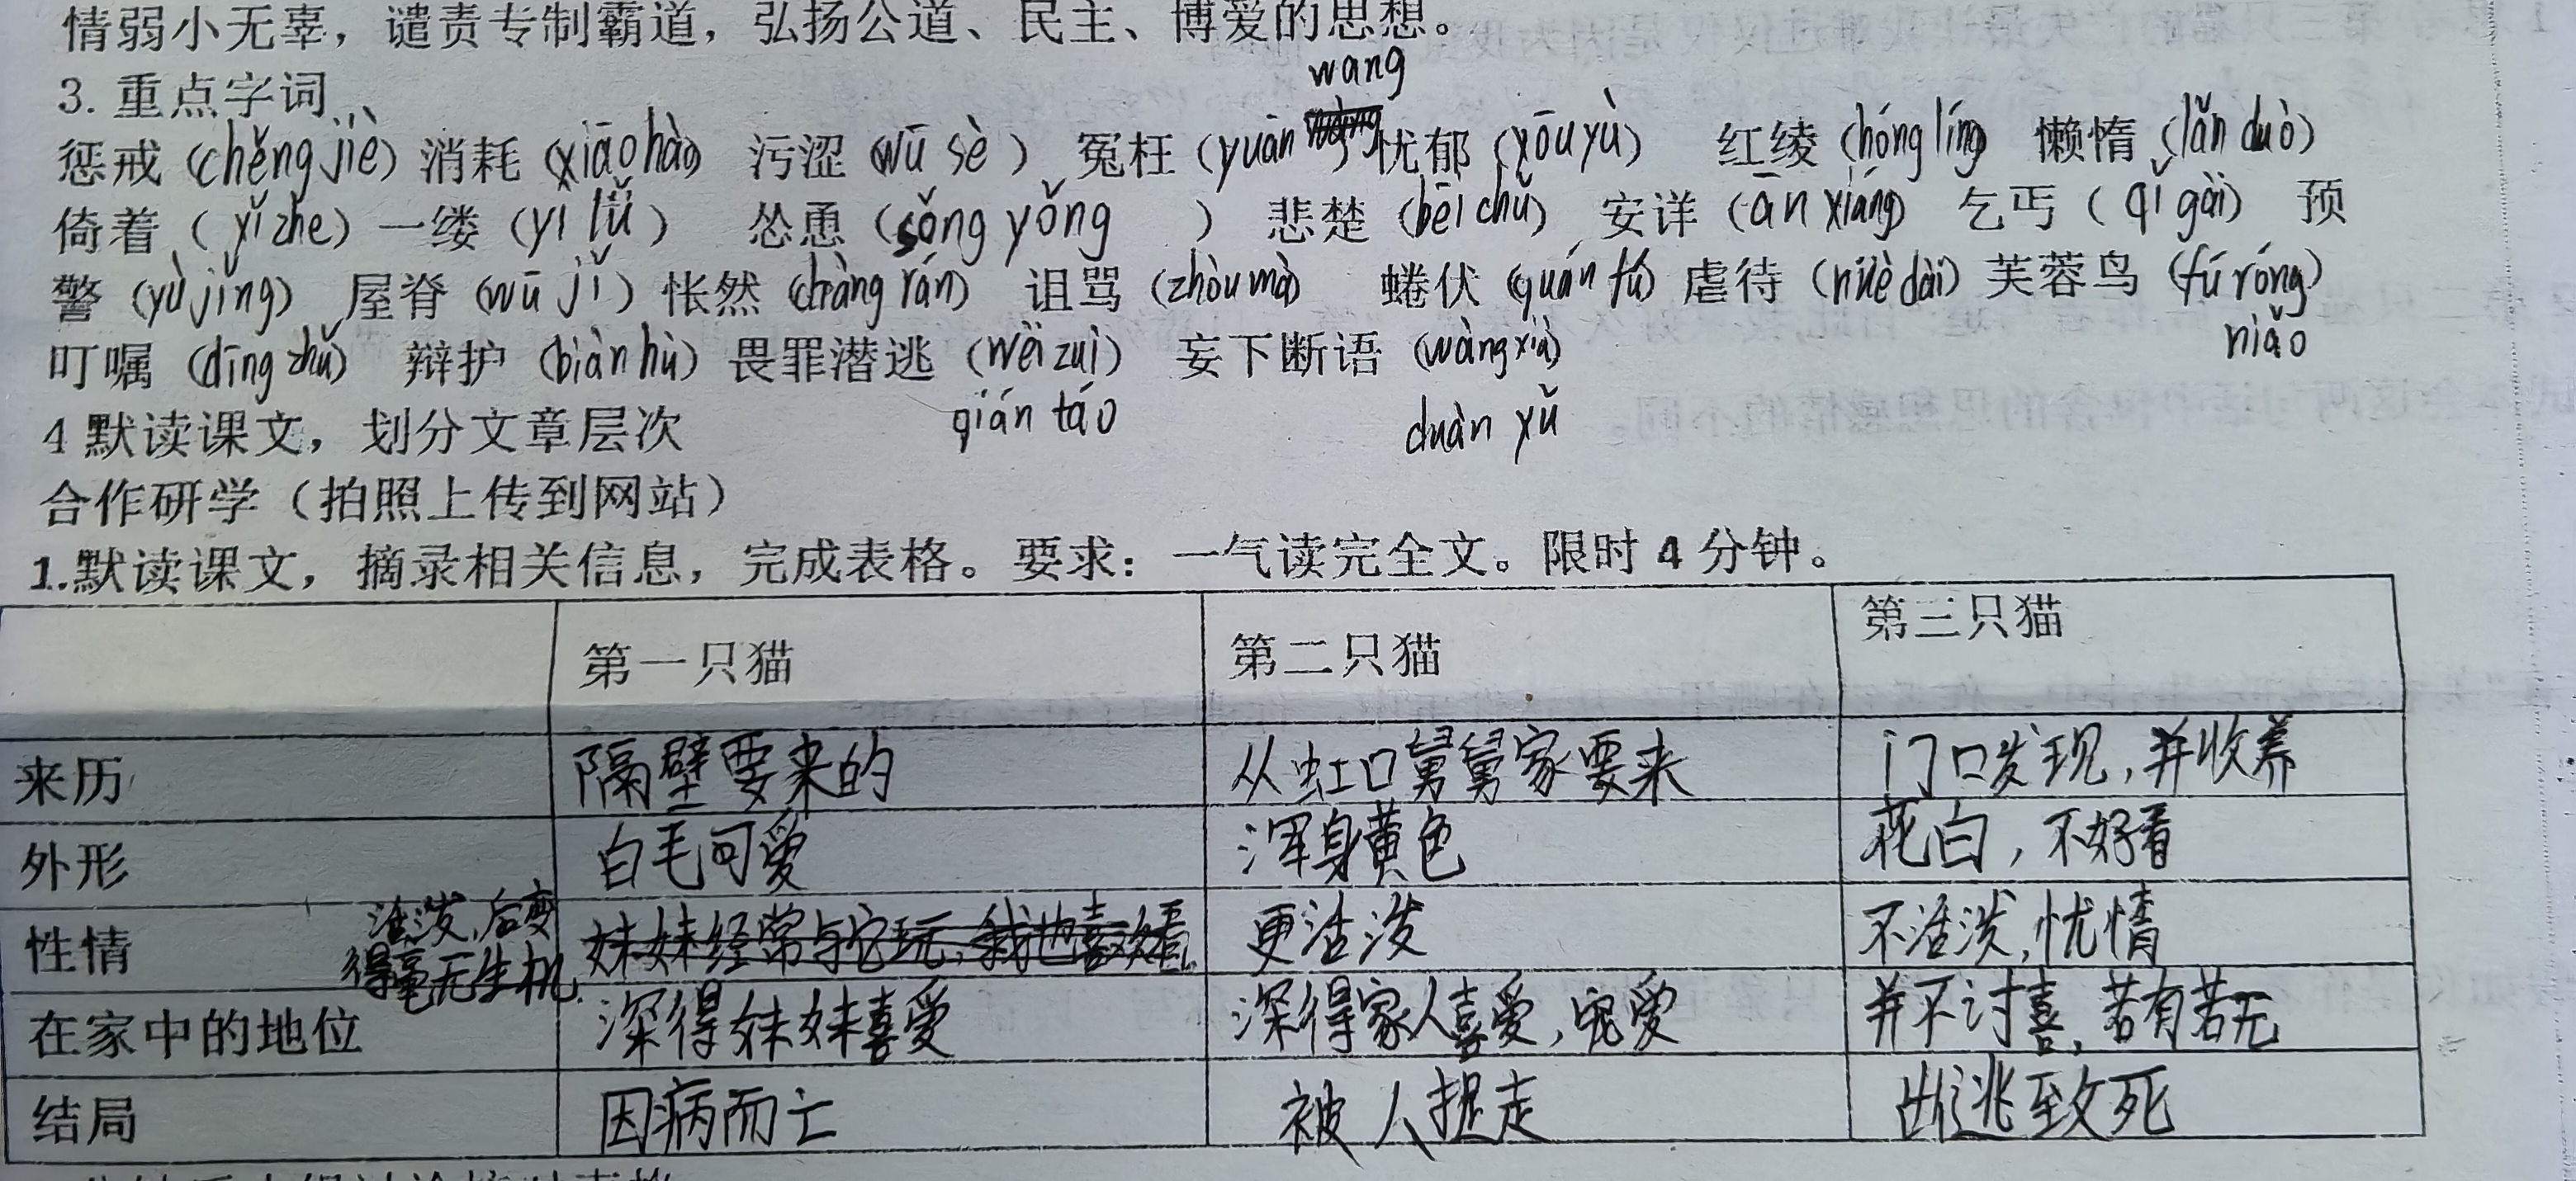 情弱小无辜，谴责专制霸道，弘扬公道、民主、博爱的思想。
3. 重点字词
wang
惩戒（chěng jiè）消耗（xiāo hào） 污涩（wū sè） 冤枉（yuān 忧郁（yōu yù） 红绫（hóng líng） 懒惰（lǎn duò）
倚着（yǐ zhe）一缕（yī lǚ） 怂恿（sǒng yǒng） 悲楚（bēi chǔ） 安详（ān xiáng） 乞丐（qǐ gài） 预
警（yù jǐng） 屋脊（wū jǐ）怅然（chàng rán） 诅骂（zhòu mà） 蜷伏（quán fú）虐待（nüè dài）芙蓉鸟（fú róng）
niǎo
叮嘱（dīng zhǔ） 辩护（biàn hù）畏罪潜逃（wèi zuì） 妄下断语（wàng xià）
qián táo duàn yǔ
4 默读课文，划分文章层次
合作研学（拍照上传到网站）
1.默读课文，摘录相关信息，完成表格。要求：一气读完全文。限时 4 分钟。
第一只猫 第二只猫 第三只猫
来历 隔壁要来的 从虹口舅舅家要来 门口发现，并收养
外形 白毛可爱 浑身黄色 花白，不好看
性情 活泼，后变得毫无生机. 妹妹经常与它玩，我也喜欢看 更活泼 不活泼，忧情
在家中的地位 深得妹妹喜爱 深得家人喜爱，宠爱 并不讨喜，若有若无
结局 因病而亡 被人捉走 出逃致死